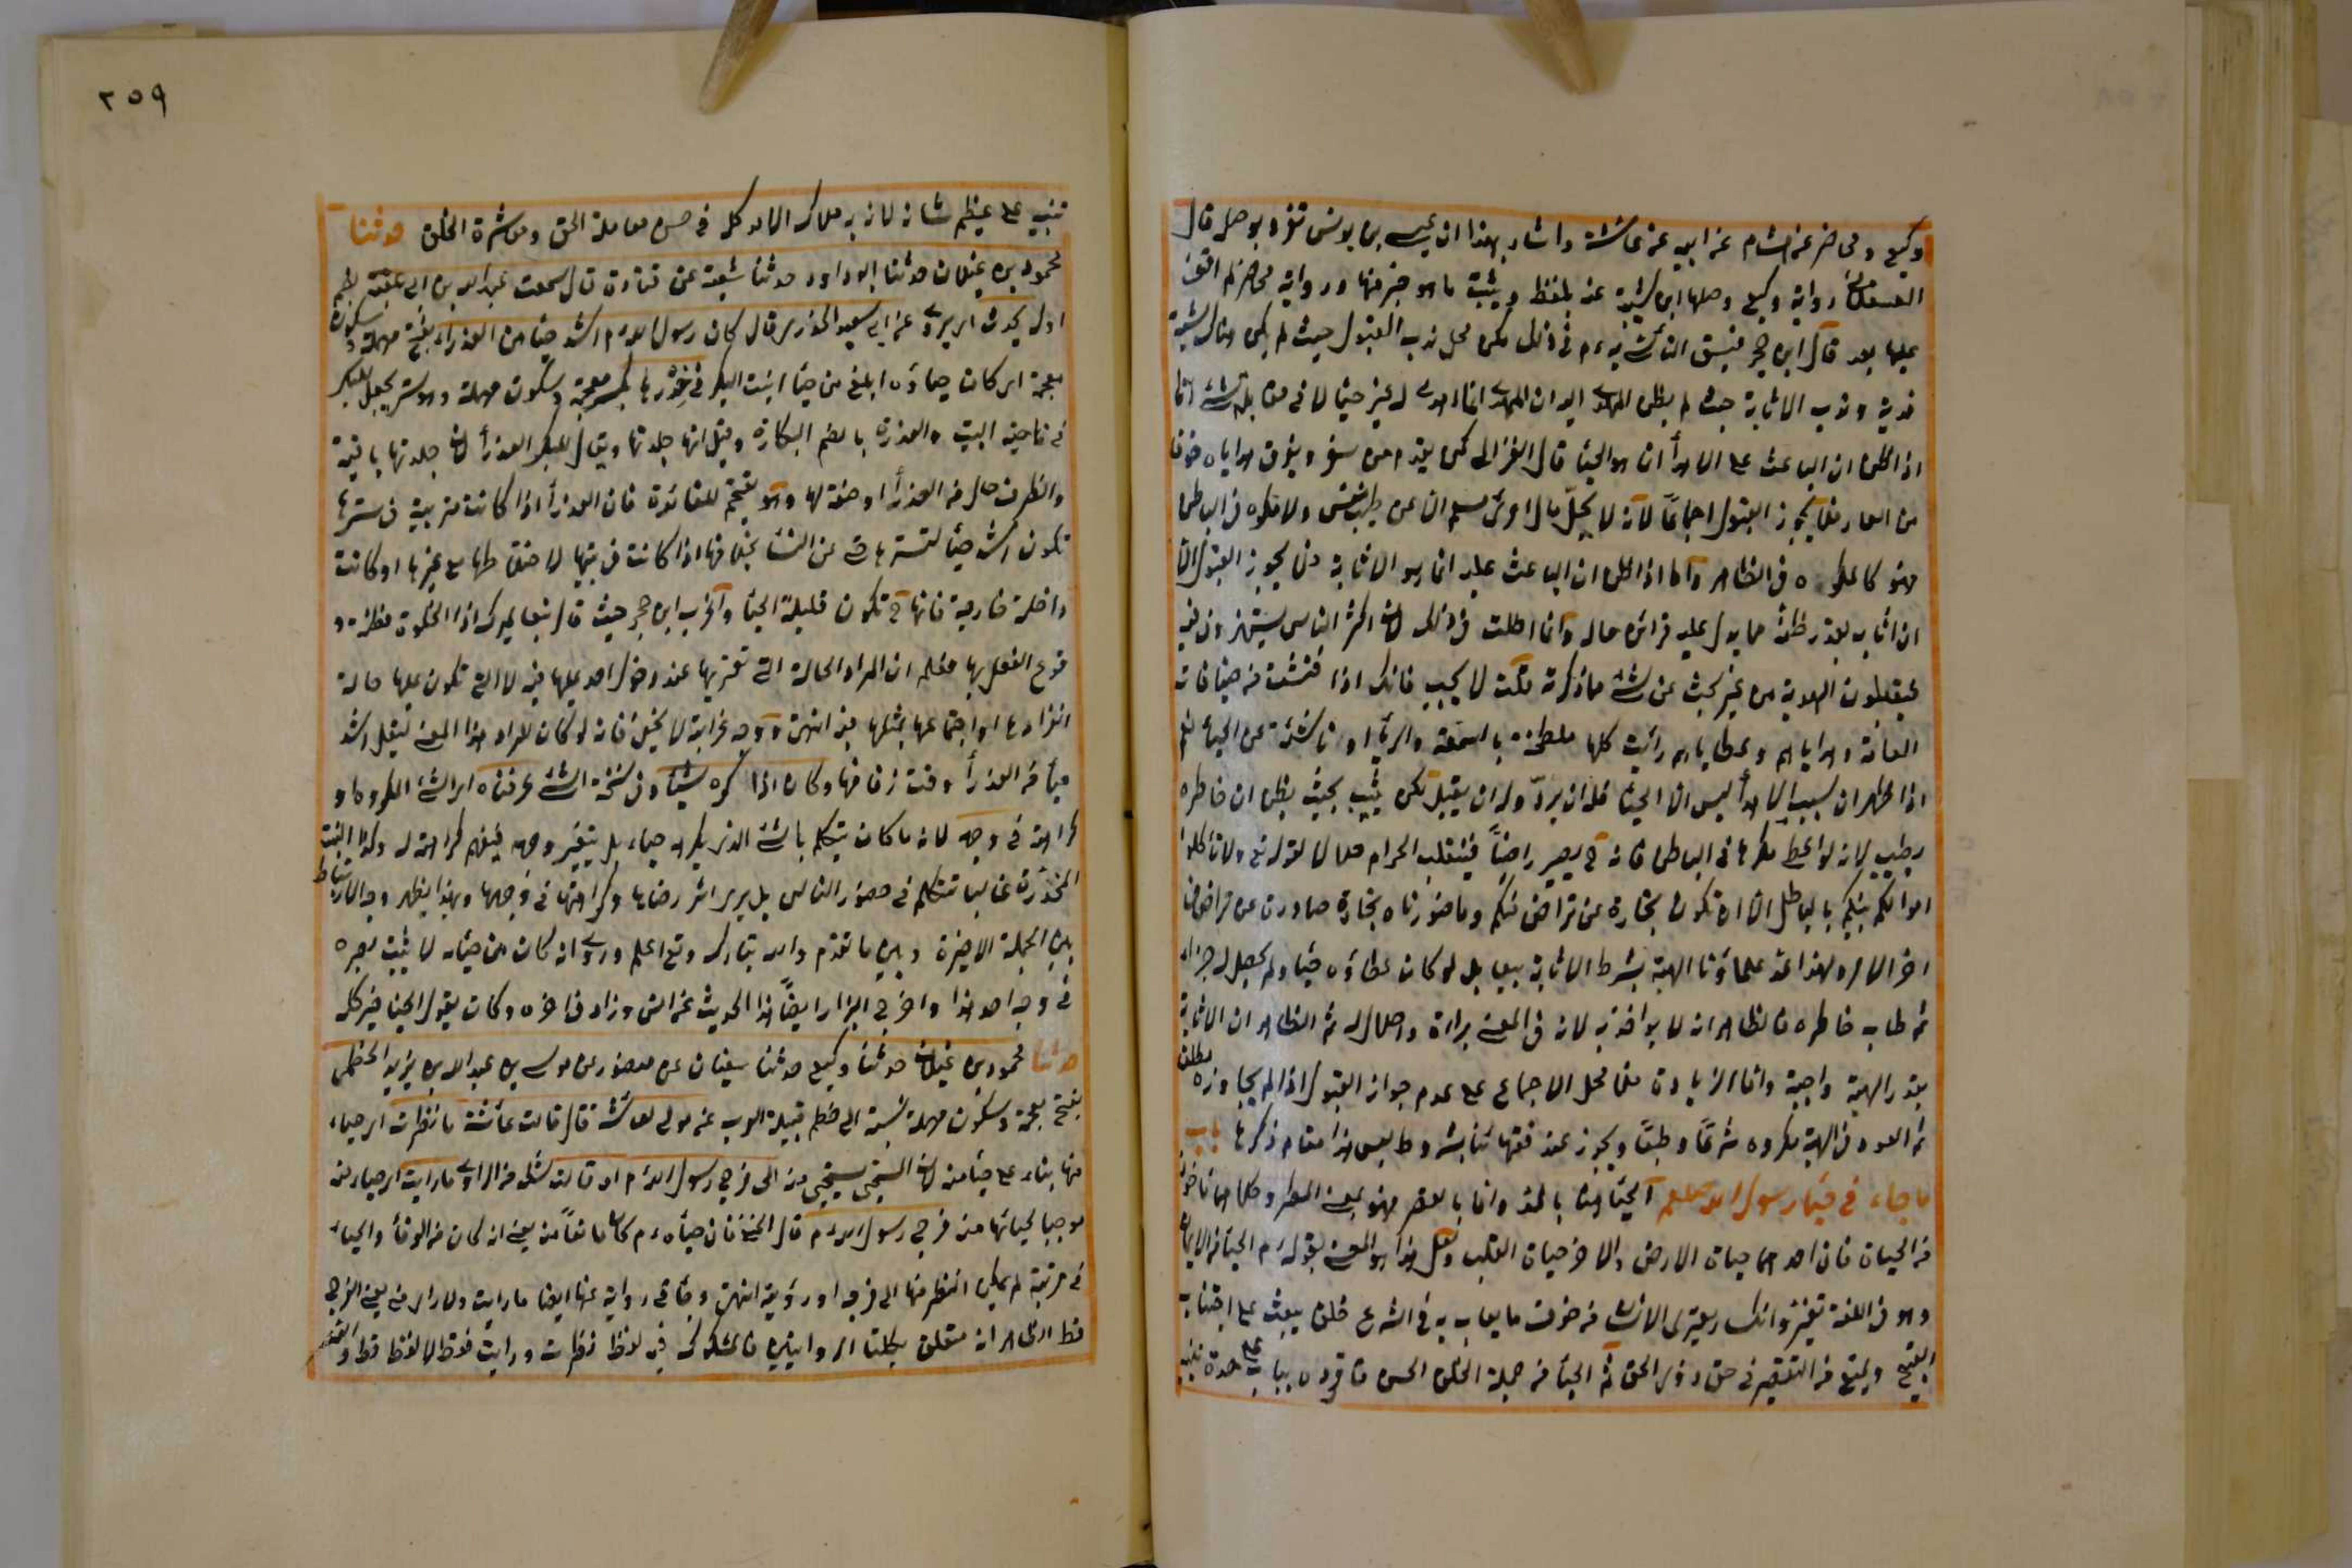 وكيع ومحاضر عن هشام عن ابيه عن عائشة واشار بهذا ان عيسى بن يونس تفرد بوصله قال
العسقلاني رواية وكيع وصلها ابن ابي شيبة عنه بلفظ ويثيب ما هو خير منها ورواية محاضر لم اقف
عليها بعد قال ابن حجر فيسن التأسي به م في ذلك لكن محل ندب القبول حيث لم يكن هناك شبهة
قوية وندب الاثابة حيث لم يظن المهدى اليه ان المهدي انما اهدى له لغير حياء لا في مقابلة شئ اما
اذا ظن ان الباعث على الاهداء انما هو الحياء قال الغزالي كمن يقدم من سفر ويفرق هداياه خوفا
من العار فلا يجوز القبول اجماعًا لانه لا يحل مال امرئ مسلم الا عن طيب نفس ولا مكره في الباطن
فهو كالمكره في الظاهر واما اذا ظن ان الباعث عليه انما هو الاثابة فلا يجوز القبول الا
ان اثابه بقدر ظنه مما يدل عليه قرائن حاله وانما اطلت في ذلك لان اكثر الناس يستهزؤن فيه
فيقبلون الهدية من غير بحث عن شئ مما ذكرته قلت لا يجب فانك اذا فتشت عن ضيافات
العامة وهداياهم وعطاياهم رأيت كلها ملطخة بالسمعة والرياء او ناشئة عن الحياء نعم
اذا ظهر ان سبب الاهداء ليس الا الحياء فله ان يرد وله ان يقبل لكن يثيب بحيث يظن ان خاطره
يطيب لانه لو اعطى مكرها في الباطن فانه ح يصير راضيًا فينقلب الحرام حلالا لقوله تع ولا تأكلوا
اموالكم بينكم بالباطل الا ان تكون تجارة عن تراض منكم وما صورناه تجارة صادرة عن تراض في
اخر الامر ولهذا عد علماؤنا الهبة بشرط الاثابة بيعا بل لو كان عطاؤه حياء ولم يحصل له جزاء
ثم طاب خاطره فالظاهر انه لا يؤاخذ به لانه في المعنى براءة واحلال له ثم الظاهر ان الاثابة
بقدر الهبة واجبة وانما الزيادة فلا محل الاجماع على عدم جواز القبول اذا لم يجاوزه مطلقا
ثم العود في الهبة مكروه شرعًا وطبعًا ويجوز عند فقهائنا بشروط ليس هذا مقام ذكرها باب
ما جاء في حياء رسول الله صلعم الحياء هنا بالمد واما بالقصر فهو بمعنى المطر وكلاهما مأخوذ
من الحياة فان احدهما حياة الارض والاخر حياة القلب ولعل هذا هو المعنى بقوله م الحياء من الايمان
وهو في اللغة تغير وانكسار يعتري الانسان من خوف ما يعاب به وفي الشرع خلق يبعث على اجتناب
القبيح ويمنع من التقصير في حق ذوي الحق ثم الحياء من جملة الخلق الحسن فافرده بباب على حدة تنبيه
٢٥٩
تنبيه على عظم شانه لانه به ملاك الامر كله في حسن معاملة الحق ومعاشرة الخلق حدثنا
محمود بن غيلان حدثنا ابو داود حدثنا شعبة عن قتادة قال سمعت عبد الله بن ابي عتبة بضم
اوله يحدث اى يروى عن ابي سعيد الخدري قال كان رسول الله م اشد حياء من العذراء بفتح مهملة وسكون
معجمة اى كان حياؤه ابلغ من حياء البنت البكر في خدرها بكسر معجمة وسكون مهملة وهو ستر يجعل للبكر
في ناحية البيت والعذرة بالضم البكارة وقيل انها جلدتها ويقال للبكر العذراء لان جلدتها باقية
والظرف حال من العذراء او صفة لها وهو تتميم للفائدة فان العذراء اذا كانت متربية في سترها
تكون اشد حياء لتسترها حتى عن النساء بخلافها اذا كانت في بيتها لاختلاطها مع غيرها او كانت
داخلة خارجة فانها ح تكون قليلة الحياء واغرب ابن حجر حيث قال تبعا لميرك اذ الخلوة مظنة و
قوع الفعل بها فعلم ان المراد الحالة التي تعتريها عند دخول احد عليها فيه لا التي تكون عليها حالة
انفرادها او اجتماعها بمثلها فيه انتهى ووجه غرابته لا يخفى فانه لو كان المراد هذا المعنى لقيل اشد
حياء من العذراء وقت زفافها وكان اذا كره شيئا وفي نسخة الشئ عرفناه اى الشئ المكروه او
كراهته في وجهه لانه ما كان يتكلم بالشئ الذي يكره حياء بل يتغير وجهه فيفهم كراهته له وكذا البنت
المخدرة غالبا تتكلم في حضور الناس بل يرى اثر رضاها وكراهتها في وجهها وبهذا يظهر وجه الارتباط
بين الجملة الاخيرة وبين ما تقدم والله تبارك وتع اعلم وروى انه كان من حيائه لا يثبت بصره
في وجه احد هذا واخرج البزار ايضًا هذا الحديث عن انس وزاد في اخره وكان يقول الحياء خير كله
حدثنا محمود بن غيلان حدثنا وكيع حدثنا سفيان عن منصور عن موسى بن عبد الله بن يزيد الخطمي
بفتح معجمة وسكون مهملة نسبة الى خطم قبيلة العرب عن مولى لعائشة قال قالت عائشة ما نظرت اى حياء
منها بناء على حياء منه لان المستحي يستحيى منه الى فرج رسول الله م او قالت شك من الراوي ما رايت اى حيائه
موجبا لحيائها من فرج رسول الله م قال الحنفي فان حياءه م كان مانعًا منه يعني انه كان من الوقار والحياء
في مرتبة لم يمكن النظر منها الى فرجه او رؤيته انتهى وجاء في رواية عنها ايضا ما رايت ولا راى مني يعني الفرج
قط الظاهر انه متعلق بكلتا الروايتين فالشكوك فيه لفظ نظرت ورايت فقط لا لفظ قط